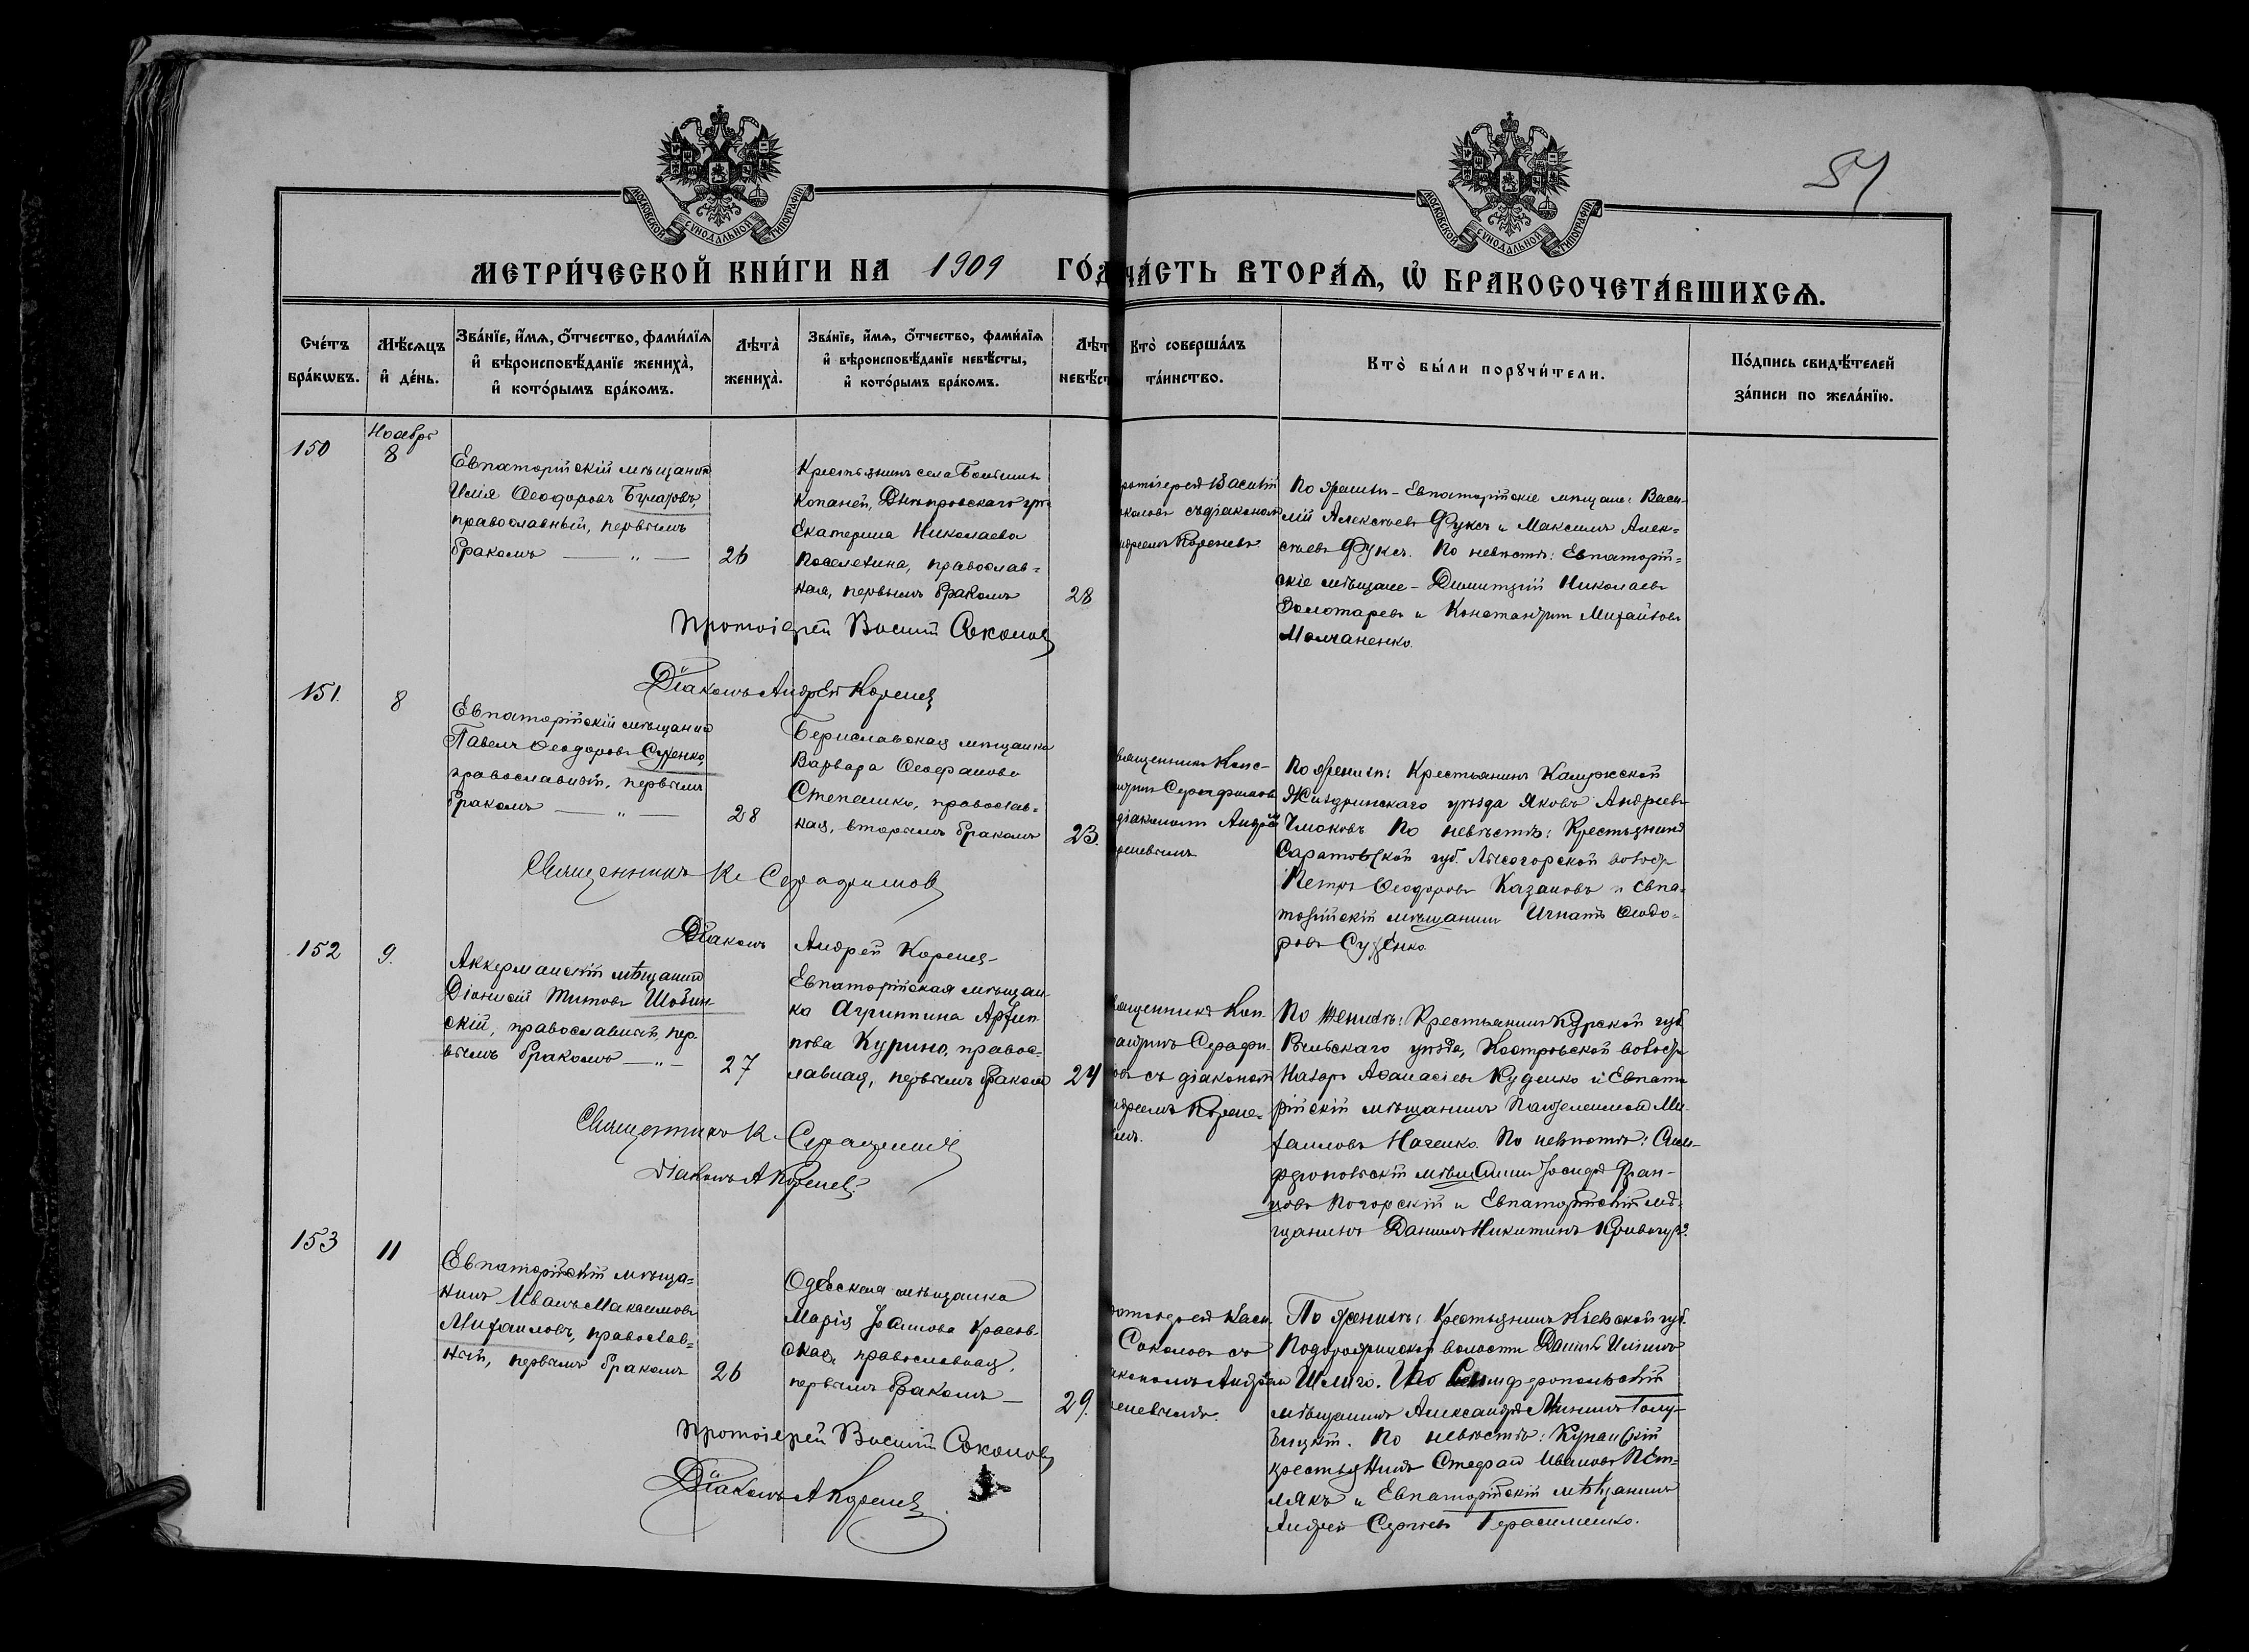 54
МОСКОВСКОЙ СѴНОДАЛЬНОЙ ТИПОГРАФІИ
МОСКОВСКОЙ СѴНОДАЛЬНОЙ ТИПОГРАФІИ
МЕТРИ́ЧЕСКОЙ КНИ́ГИ НА 1909 ГО́Д
ЧА́СТЬ ВТОРА́Ѧ, Ѽ БРАКОСОЧЕТА́ВШИХСѦ.
Сче́тъ бра́кѡвъ.
Мѣ́сѧцъ и҆ де́нь.
Зва́нїе, и҆́мѧ, ѻ҆́тчество, фами́лїѧ
и҆ вѣроисповѣ́данїе жениха̀,
и҆ кото́рымъ бра́комъ.
Лѣта̀ жениха̀.
Зва́нїе, и҆́мѧ, ѻ҆́тчество, фами́лїѧ
и҆ вѣроисповѣ́данїе невѣ́сты,
и҆ кото́рымъ бра́комъ.
Лѣт
невѣ́ст
Кто̀ соверша́лъ
та́инство.
Кто̀ бы́ли порꙋчи́тели.
По́дпись свидѣ́телей
за́писи по жела́нїю.
150
Ноабрь
8
Евпаторійскій мѣщанинъ
Илія Ѳеодоровъ Булатовъ,
православный, первымъ
бракомъ — „ —
26
села
Копаней, Днѣпровскаго
Екатерина Николаева
православ=
ная, первымъ бракомъ
28
Василій
съ діакономъ
Кореневъ
Евпаторійскіе мѣщане: Васи-
лій Алексѣевъ Фуксъ и Максимъ Алек=
сѣевъ Фуксъ. По невѣстѣ: Евпаторій=
скіе мѣщане - Димитрій Николаевъ
Золотаревъ и Константинъ Михайловъ
Молчаненко.
Протоіерей Василій Соколовъ
Діаконъ Андрей Кореневъ
151.
8
Евпаторійскій мѣщанинъ
Павелъ Ѳеодоровъ
православный, первымъ
бракомъ — „ —
28
Бериславская мѣщанка
Варвара Ѳеофанова
Степенко, православ=
ная, вторымъ бракомъ
23.
вященникъ Конс-
Серафимовъ
діакономъ Андре
реневымъ
По женихѣ: Крестьянинъ Калужской
Жиздринскаго уѣзда Яковъ Андреевъ
По невѣстѣ: Крестьянинъ
Саратовской губ. Лысогорской волости
Петръ Ѳеодоровъ Казаковъ и Евпа-
торійскій мѣщанинъ Игнатъ Ѳеодо-
ровъ
Священникъ К. Серафимовъ
Діаконъ Андрей Кореневъ
152
9.
Аккерманскій мѣщанинъ
Діонисій Титовъ
скій, православный, пер-
вымъ бракомъ — „ —
27
Евпаторійская мѣщан-
ка Агриппина Архип-
пова Курино, правос-
лавная, первымъ бракомъ
24
вященникъ Кон-
Серафи-
съ діакономъ
Андреемъ Корене-
вымъ.
По женихѣ: Крестьянинъ Курской губ.
Рыльскаго уѣзда, волости
Назаръ Аѳанасіевъ Куценко и Евпато
рійскій мѣщанинъ Пантелеимонъ Ми-
хаиловъ Наченко. По невѣстѣ: Сим-
феропольскій мѣщанинъ Іосифъ Фран-
цовъ Погорскій и Евпаторійскій мѣ-
щанинъ Даніилъ Никитинъ
Священникъ К. Серафимовъ
Діаконъ А Кореневъ
153
11
Евпаторійскій мѣща=
нинъ Иванъ Максимовъ
Михаиловъ, православ=
ный, первымъ бракомъ
26
Одесская мѣщанка
Марія
православная,
первымъ бракомъ —
29.
ротоіерей Васи-
Соколовъ съ
іакономъ Андреем
реневымъ.
По женихѣ: Крестьянинъ Кіевской губ.
волости Даніилъ
Симферопольскій
мѣщанинъ Александръ Голу-
По невѣстѣ:
крестьянинъ Стефанъ Ивановъ Пет=
лякъ и Евпаторійскій мѣщанинъ
Андрей Сергѣевъ Герасименко.
Протоіерей Василій Соколовъ
Діаконъ А Кореневъ